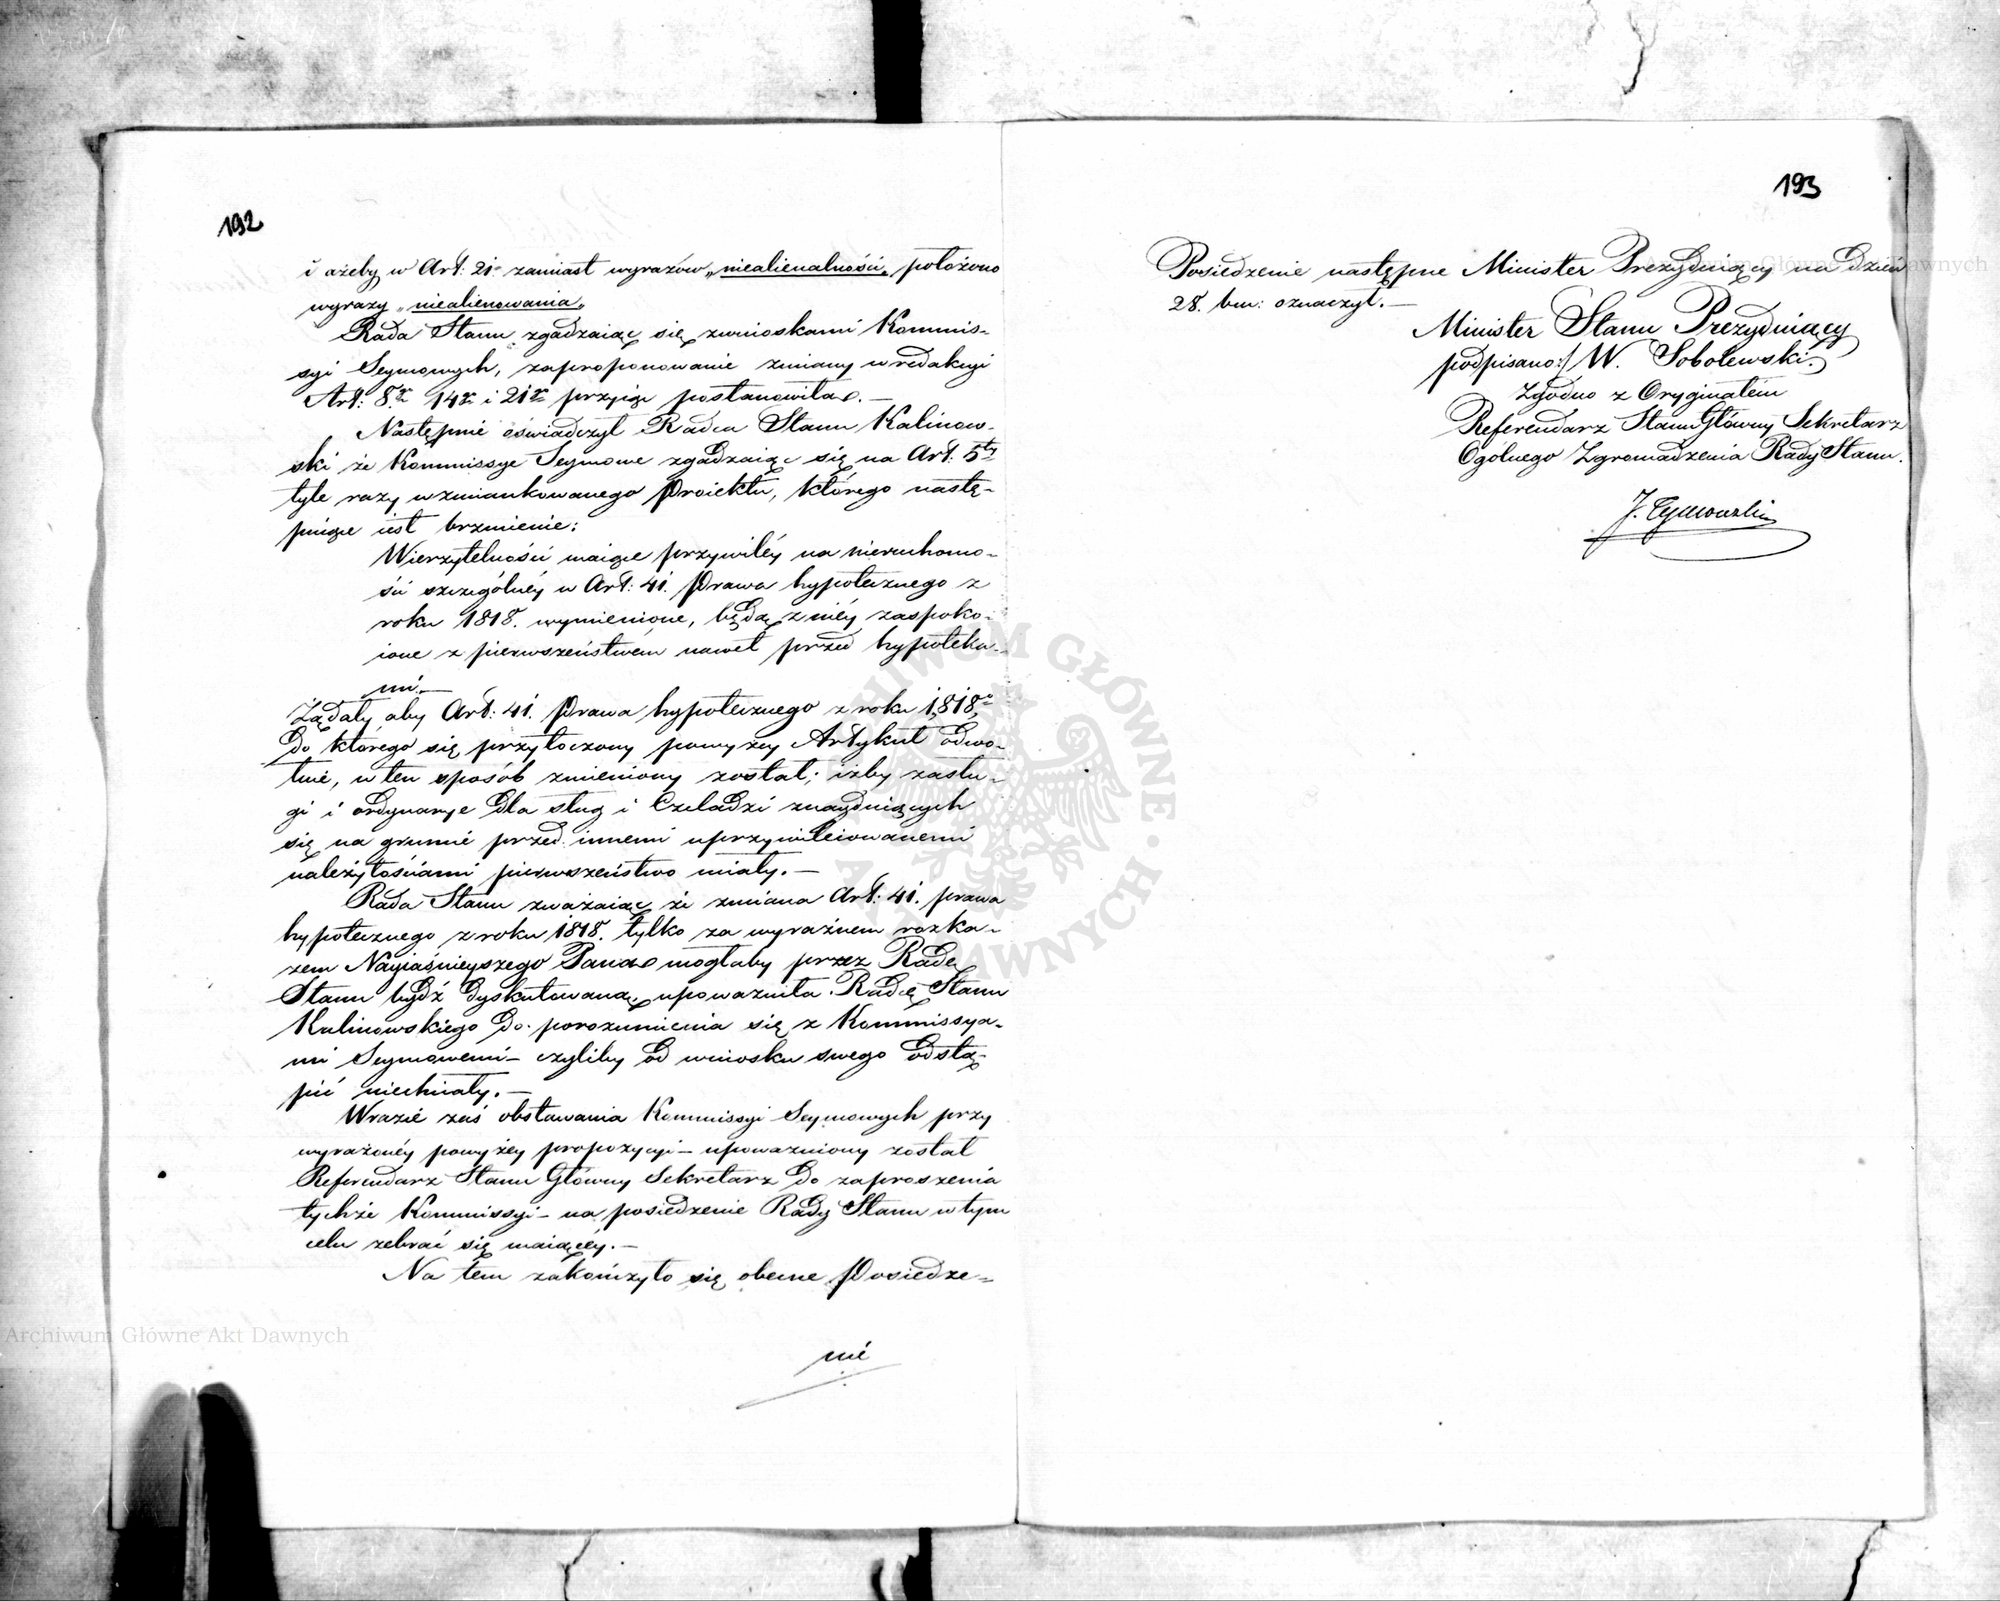 192
i ażeby w Art: 21 zamiast wyrazów „niealienalności„ położono
wyrazy „niealienowania„
Rada Stanu zgadzaiąc się z wnioskami Kommis-
syi Seymowych, zaproponowanie zmiany w redakcyi
Art: 8. 14 i 21 przyiąć postanowiła. —
Następnie oświadczył Radca Stanu Kalinow-
ski że Kommissye Seymowe zgadzaiąc się na Art. 5ty
tyle razy wzmiankowanego Proiektu, którego nastę-
puiące iest brzmienie:
Wierzytelności maiące przywiléy na nieruchomo-
ści szczególnéy w Art: 41. Prawa hypotecznego z
roku 1818. wymienione, będą z niéy zaspoko-
ione z pierwszeństwem nawet przed hypoteka-
mi. —
Żądały aby Art: 41. Prawa hypotecznego z roku 1818,
do którego się przytoczony powyżey Artykuł odwo-
łuie, w ten sposób zmieniony został; iżby zasłu-
gi i ordynarye dla sług i Czeladzi znayduiących
się na gruncie przed innemi uprzywileiowanemi
należytościami pierwszeństwo miały. —
Rada Stanu zważaiąc że zmiana Art: 41. prawa
hypotecznego z roku 1818. tylko za wyraźnem rozka-
zem Nayiaśnieyszego Pana mogłaby przez Radę
Stanu bydź dyskutowaną, upoważniła Radcę Stanu
Kalinowskiego do porozumienia się z Kommissya-
mi Seymowemi — czyliby od wniosku swego odstą-
pić niechciały. —
W razie zaś obstawania Kommissyi Seymowych przy
wyrażonéy powyżéy propozycyi — upoważniony został
Referendarz Stanu Główny Sekretarz do zaproszenia
tychże Kommissyi — na posiedzenie Rady Stanu w tym
celu zebrać się maiącéy. —
Na tem zakończyło się obecne Posiedze-
nie
193
Posiedzenie następne Minister Prezyduiący na dzień
28. bm: oznaczył. —
Minister Stanu Prezyduiący
podpisano:/ W. Sobolewski.
Zgodno z Oryginałem
Referendarz Stanu Główny Sekretarz
Ogólnego Zgromadzenia Rady Stanu.
J. Tymowski
Archiwum Główne Akt Dawnych
Archiwum Główne Akt Dawnych
ARCHIWUM GŁÓWNE AKT DAWNYCH